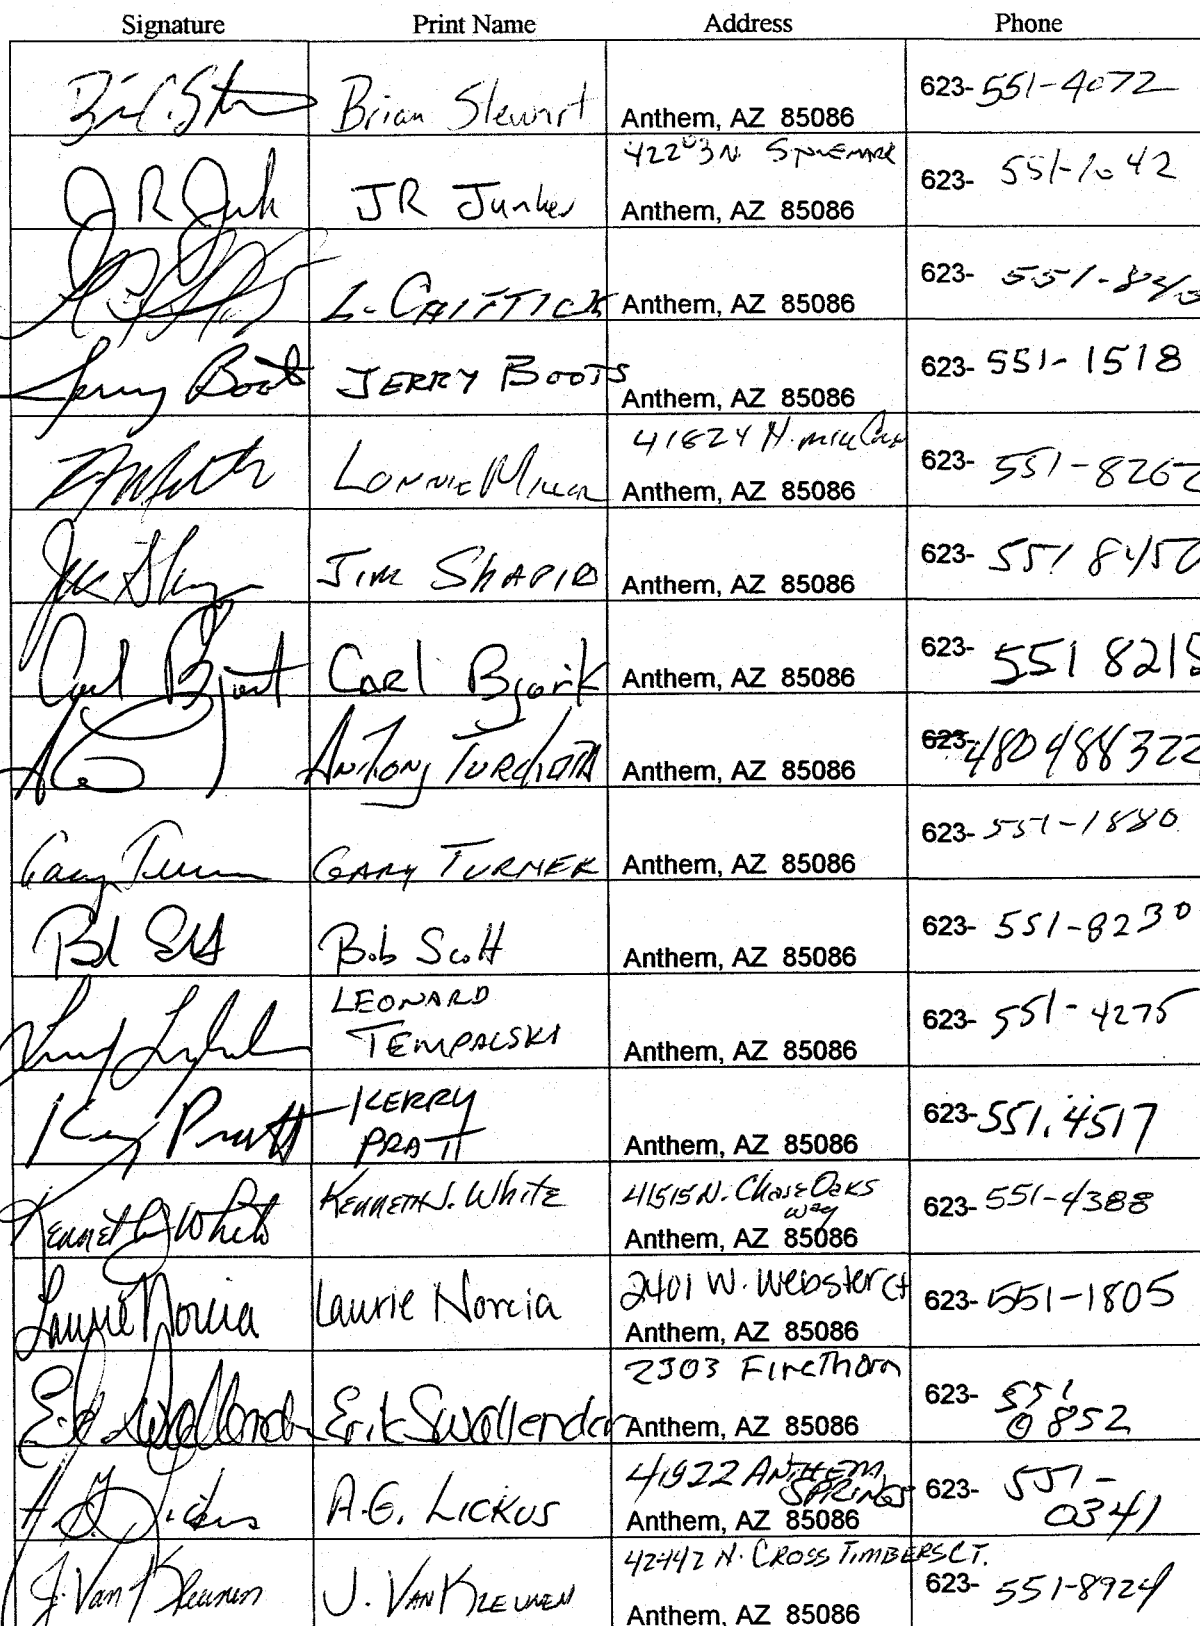 Signature Print Name Address Phone
Brian Stewart Anthem, AZ 85086 623-551-4072
J R Junker JR Junker 42203 N. Anthem, AZ 85086 623- 551-1042
L. Anthem, AZ 85086 623- 551-
Jerry Boots JERRY BOOTS Anthem, AZ 85086 623-551-1518
LONNIE MILLER 41824 N. Anthem, AZ 85086 623- 551-8262
JIM SHAPIRO Anthem, AZ 85086 623- 551 8450
Carl Bjork CARL Bjork Anthem, AZ 85086 623- 551 8215
ANTHONY Anthem, AZ 85086 623- 480 488 322
Gary Turner GARY TURNER Anthem, AZ 85086 623- 551-1880
Bob Scott Bob Scott Anthem, AZ 85086 623- 551-8230
LEONARD
TEMPALSKI Anthem, AZ 85086 623- 551-4275
Kerry Pratt KERRY
PRATT Anthem, AZ 85086 623-551.4517
Kenneth J White KENNETH J. White 41515 N. Chase Oaks
way
Anthem, AZ 85086 623-551-4388
Laurie Norcia Laurie Norcia 2401 W. Webster Ct
Anthem, AZ 85086 623-551-1805
Erik Swollendor 2303 Firethorn
Anthem, AZ 85086 623- 551
0852
A.G. Lickus A.G. LICKUS 41922 ANTHEM
SPRINGS
Anthem, AZ 85086 623- 551-
0341
J. Van Kleunen J. VAN KLEUNEN 42442 N. CROSS TIMBERS CT.
Anthem, AZ 85086 623- 551-8924